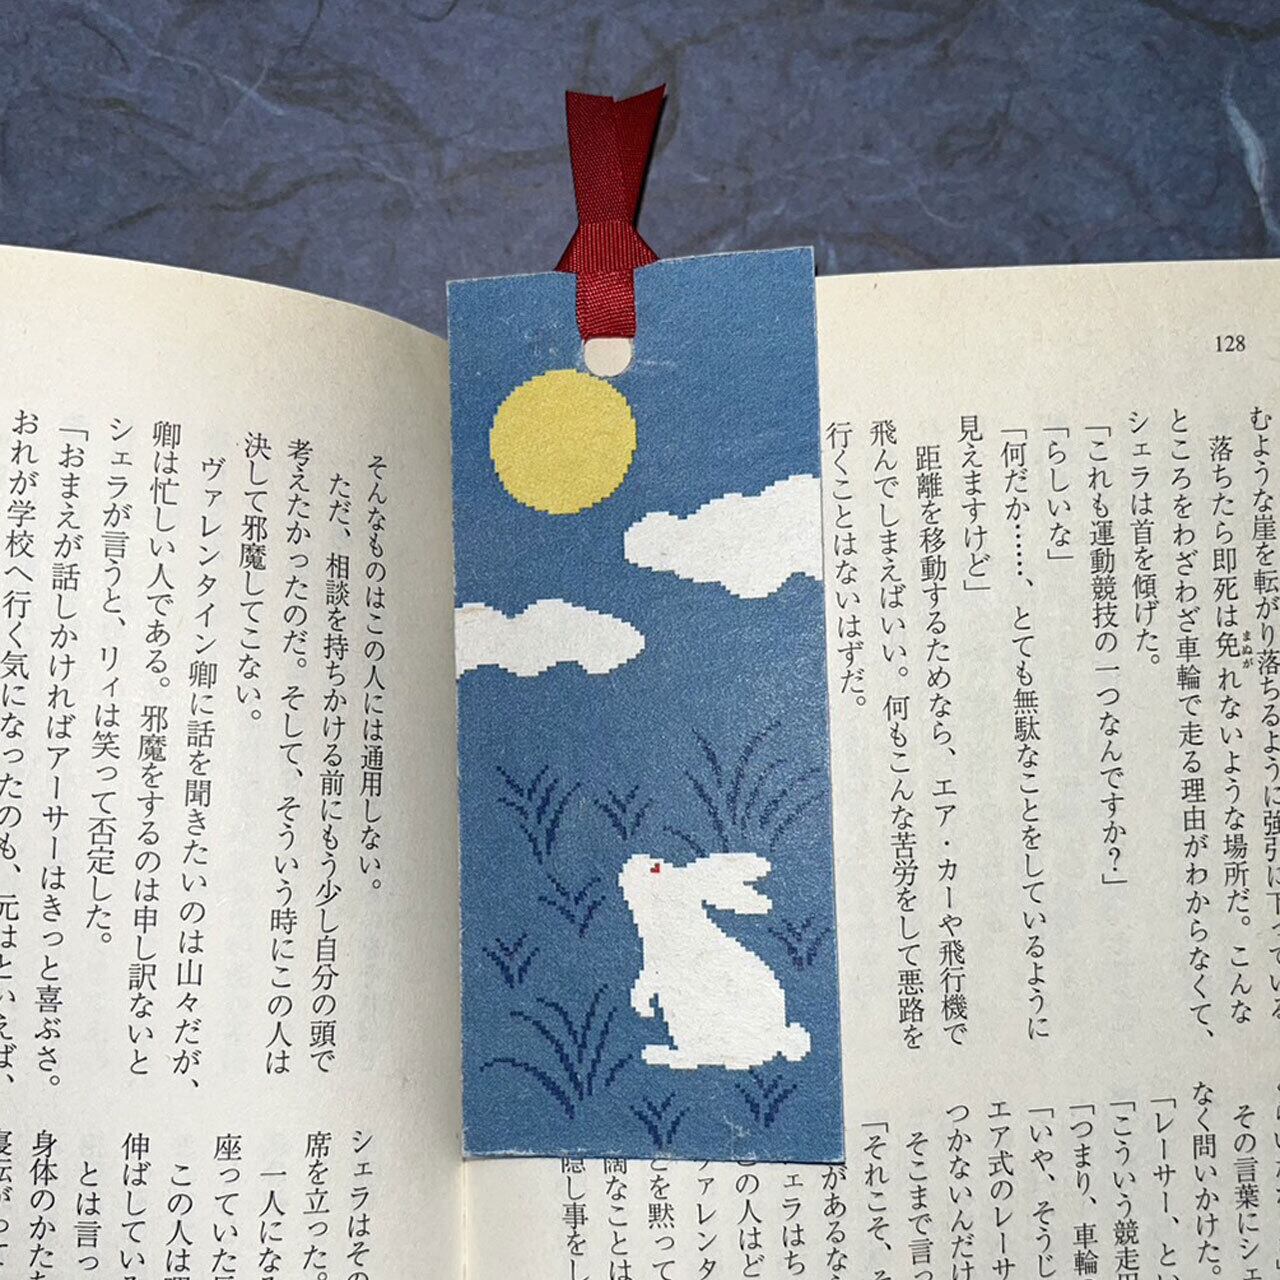 128
むような崖を転がり落ちるように強引に下っている
落ちたら即死は免れないような場所だ。こんな
まぬが
ところをわざわざ車輪で走る理由がわからなくて、
シェラは首を傾げた。
「これも運動競技の一つなんですか?」
「らしいな」
「何だか……、とても無駄なことをしているように
見えますけど」
距離を移動するためなら、エア・カーや飛行機で
飛んでしまえばいい。何もこんな苦労をして悪路を
行くことはないはずだ。
その言葉にシェ
なく問いかけた。
「レーサー、と
「こういう競走
「つまり、車輪
「いや、そうじ
エア式のレーサ
つかないんだけ
そこまで言っ
「それこそ、そ
があるなら
ェラはち
この人はど
ァレンタ
とを黙って
闊なことは
隠し事をし
そんなものはこの人には通用しない。
ただ、相談を持ちかける前にもう少し自分の頭で
考えたかったのだ。そして、そういう時にこの人は
決して邪魔してこない。
ヴァレンタイン卿に話を聞きたいのは山々だが、
卿は忙しい人である。邪魔をするのは申し訳ないと
シェラが言うと、リィは笑って否定した。
「おまえが話しかければアーサーはきっと喜ぶさ。
おれが学校へ行く気になったのも、元はといえば、
シェラはその
席を立った。
一人にな
座っていた
この人は
伸ばしてい
とは言っ
身体のかた
寝転がって